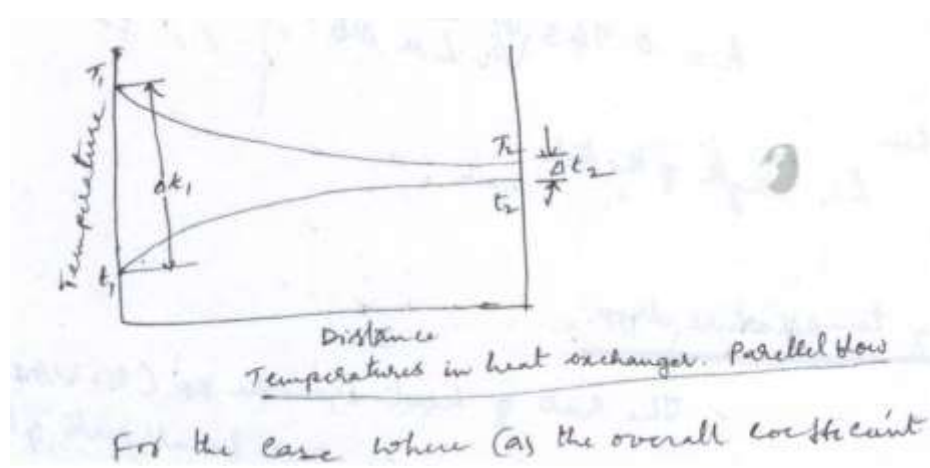 T₁
Temperature
Δt₁
T₂
Δt₂
t₂
t₁
Distance
Temperatures in heat exchanger. Parellel flow
For the case where (as the overall coefficient